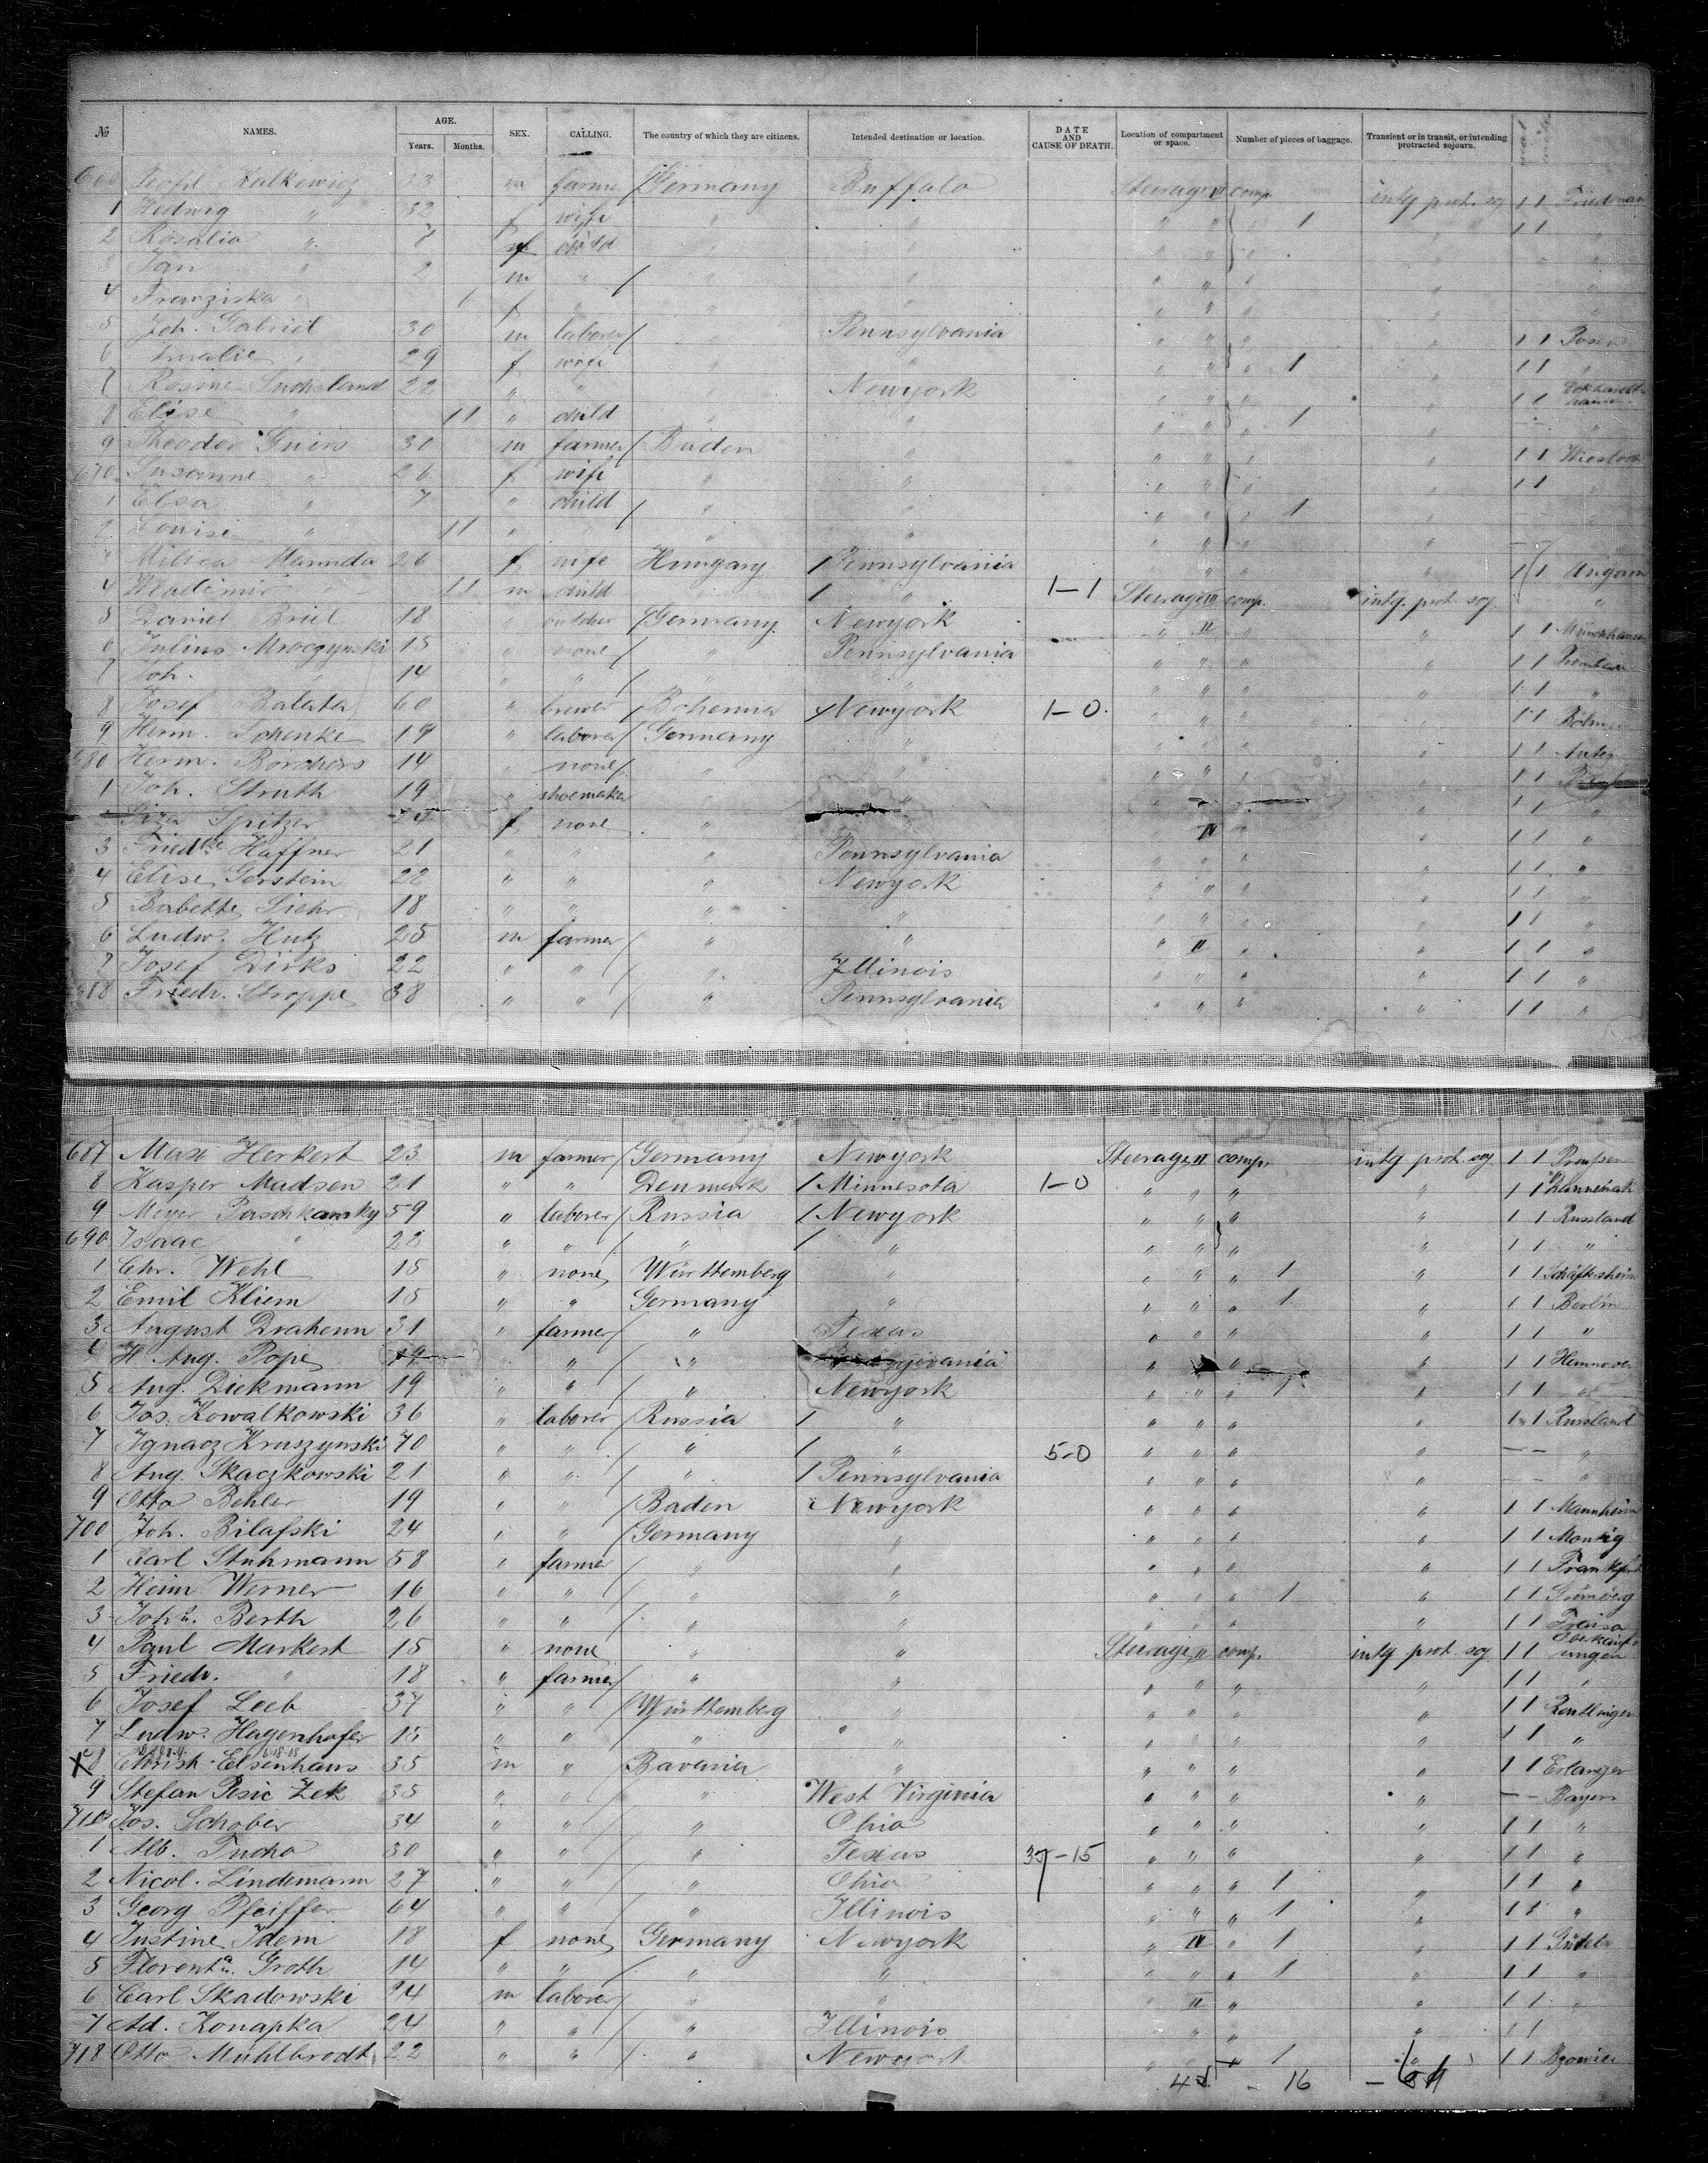 № NAMES. AGE. Years. Months. SEX. CALLING. The country of which they are citizens. Intended destination or location. DATE AND CAUSE OF DEATH. Location of compartment or space. Number of pieces of baggage. Transient or in transit, or intending protracted sojourn.
Kalkewicz 33 m farmer Germany Buffalo Steerage II comp. intg prot. soj 1 1
1 Hedwig " 32 f wife " " " " " 1 " 1 1 "
2 Rosalia " 7 f child " " " " " " "
3 Jan " 2 m " " " " " " " "
4 Franziska " f " " " " " " " "
5 Joh. Gabriel 30 m laborer " Pennsylvania " " " " 1 1 Posen
6 Amalie " 29 f wife " " " " " 1 " 1 1 "
7 Rosine Suchsland 22 " " " Newyork " " " " 1 1
8 Elise " 11 " child " " " " " 1 " "
9 Theodor Guin 30 m farmer Baden " " " " " 1 1 Wiesloch
670 Susanne " 26 f wife " " " " " " 1 1 "
1 Elsa " 7 " child " " " " " 1 "
2 Louise " 11 " " " " " " " "
Milica Mannda 26 f wife Hungary Pennsylvania " " " " 1 1 Ungarn
4 Wladimir 11 m child " " 1-1 Steerage II comp. intg. prot. soj "
5 Daniel Briel 18 " butcher Germany Newyork " II " " 1 1
6 Julius Mroczynski 15 " none " Pennsylvania " " " " 1 1
7 Joh. " 14 " " " " " " " " 1 1 "
8 Josef Balata 60 " brewer Bohemia Newyork 1-0 " " " " 1 1
9 Herm. Schenke 19 " laborer Germany " " " " " 1 1
680 Herm. Borchers 14 " none " " " " " " 1 1
1 Joh. Struth 19 " shoemaker " " " " " 1 1 "
Spitzer f none " " IV " " 1 1 "
3 Friedke Haffner 21 " " " Pennsylvania " " " " 1 1 "
4 Elise Gerstein 22 " " " Newyork " " " " 1 1 "
5 Babette Siehr 18 " " " " " " " " 1 1 "
6 Ludw. Hutz 25 m farmer " " " II " " 1 1 "
7 Josef Dirks 22 " " " Illinois " " " " 1 1 "
688 Friedr. Stroppe 38 " " " Pennsylvania " " " " 1 1 "
687 Max Herkert 23 m farmer Germany Newyork Steerage II comp. intg prot. soj 1 1 Preußen
8 Kasper Madsen 21 " " Denmark Minnesota 1-0 " " " " 1 1 Dannemark
9 Meyer Paschkansky 59 " laborer Russia Newyork " " " " 1 1 Russland
690 Isaac " 22 " " " " " " " " 1 1 "
1 Chr. Wehl 15 " none Württemberg " " " " 1 " 1 1 Schäftersheim
2 Emil Kliem 15 " " Germany " " " " 1 " 1 1 Berlin
3 August Draheim 31 " farmer " Texas " " " " 1 1 "
4 H. Aug. Pope 19 " " " Pennsylvania " " " 1 1 Hannover
5 Aug. Diekmann 19 " " " Newyork " " " " 1 1 "
6 Jos. Kowalkowski 36 " laborer Russia " " " " " 1 1 Russland
7 Ignacz Kruszynski 70 " " " " 5-0 " " " " — — "
8 Aug. Skaczkowski 21 " " " Pennsylvania " " " " — — "
9 Otto Behler 19 " " Baden Newyork " " " " 1 1 Mannheim
700 Joh. Bilafski 24 " " Germany " " " " " 1 1
1 Carl Stuhmann 58 " farmer " " " " " " 1 1 Frankfurt
2 Heinr Werner 16 " " " " " " " 1 " 1 1
3 Johs. Berth 26 " " " " " " " " 1 1
4 Paul Markert 15 " none " " Steerage II comp. intg prot. soj 1 1
5 Friedr. " 18 " farmer " " " " " " 1 1 "
6 Josef Leeb 37 " " Württemberg " " " " " 1 1 Reutlingen
7 Ludw. Hagenhofer 15 " " " " " " " " 1 1 "
8 Christ. Elsenhans 35 m " Bavaria " " " " " 1 1 Erlangen
9 Stefan Pesic Zek 35 " " " West Virginia " " " " — — Bayern
710 Jos. Schober 34 " " " Ohio " " " " 1 1 "
1 Alb. Tucho 30 " " " Texas " " " " 1 1 "
2 Nicol. Lindemann 27 " " " Ohio " " " 1 " 1 1 "
3 Georg Pfeiffer 64 " " " Illinois " " " 1 " 1 1 "
4 Justine Idem 18 f none Germany Newyork " IV " 1 " 1 1
5 Florent Groth 14 " " " " " " " 1 " 1 1 "
6 Carl Skadowski 24 m laborer " " " II " " 1 1 "
7 Ad. Konapka 24 " " " Illinois " " " 1 1
718 Otto Mühlbrodt 22 " " " Newyork " " " 1 " 1 1
16